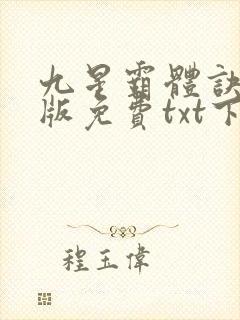 九星霸體訣
版免費txt下
程玉偉